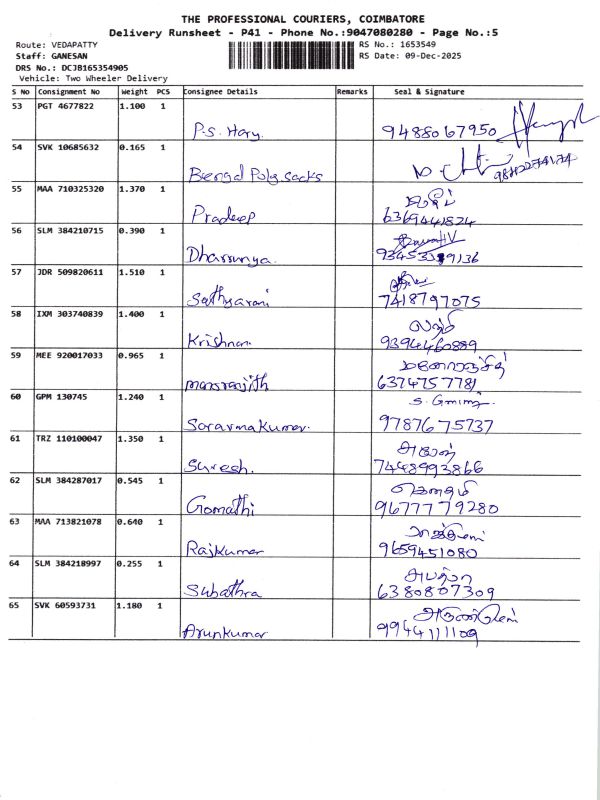 THE PROFESSIONAL COURIERS, COIMBATORE
Delivery Runsheet - P41 - Phone No.:9047080280 - Page No.:5
Route: VEDAPATTY
RS No.: 1653549
Staff: GANESAN
RS Date: 09-Dec-2025
DRS No.: DCJB165354905
Vehicle: Two Wheeler Delivery
S No Consignment No Weight PCS Consignee Details Remarks Seal & Signature
53 PGT 4677822 1.100 1
P.S. Hary. 9488067950
54 SVK 10685632 0.165 1
Bengal Poly sacks
55 MAA 710325320 1.370 1
Pradeep 6369441824
56 SLM 384210715 0.390 1
Dharrunya.
57 JDR 509820611 1.510 1
Sathyarani 7418797075
58 IXM 303740839 1.400 1
Krishnan 9394460889
59 MEE 920017033 0.965 1
மனோரஞ்சித்
manoranjith 6374757781
60 GPM 130745 1.240 1
Saravanakumar. 9787675737
61 TRZ 110100047 1.350 1
Suresh. 7448993866
62 SLM 384287017 0.545 1
கௌதமி
Gomathi 9677779280
63 MAA 713821078 0.640 1
Rajkumar 9659451080
64 SLM 384218997 0.255 1
Subathra 6380807309
65 SVK 60593731 1.180 1
Arunkumar 9944111109